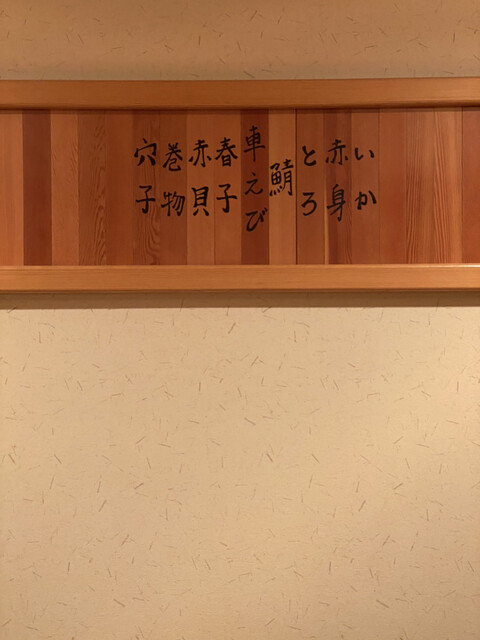 いか
赤身
とろ
鯖
車えび
春子
赤貝
巻物
穴子